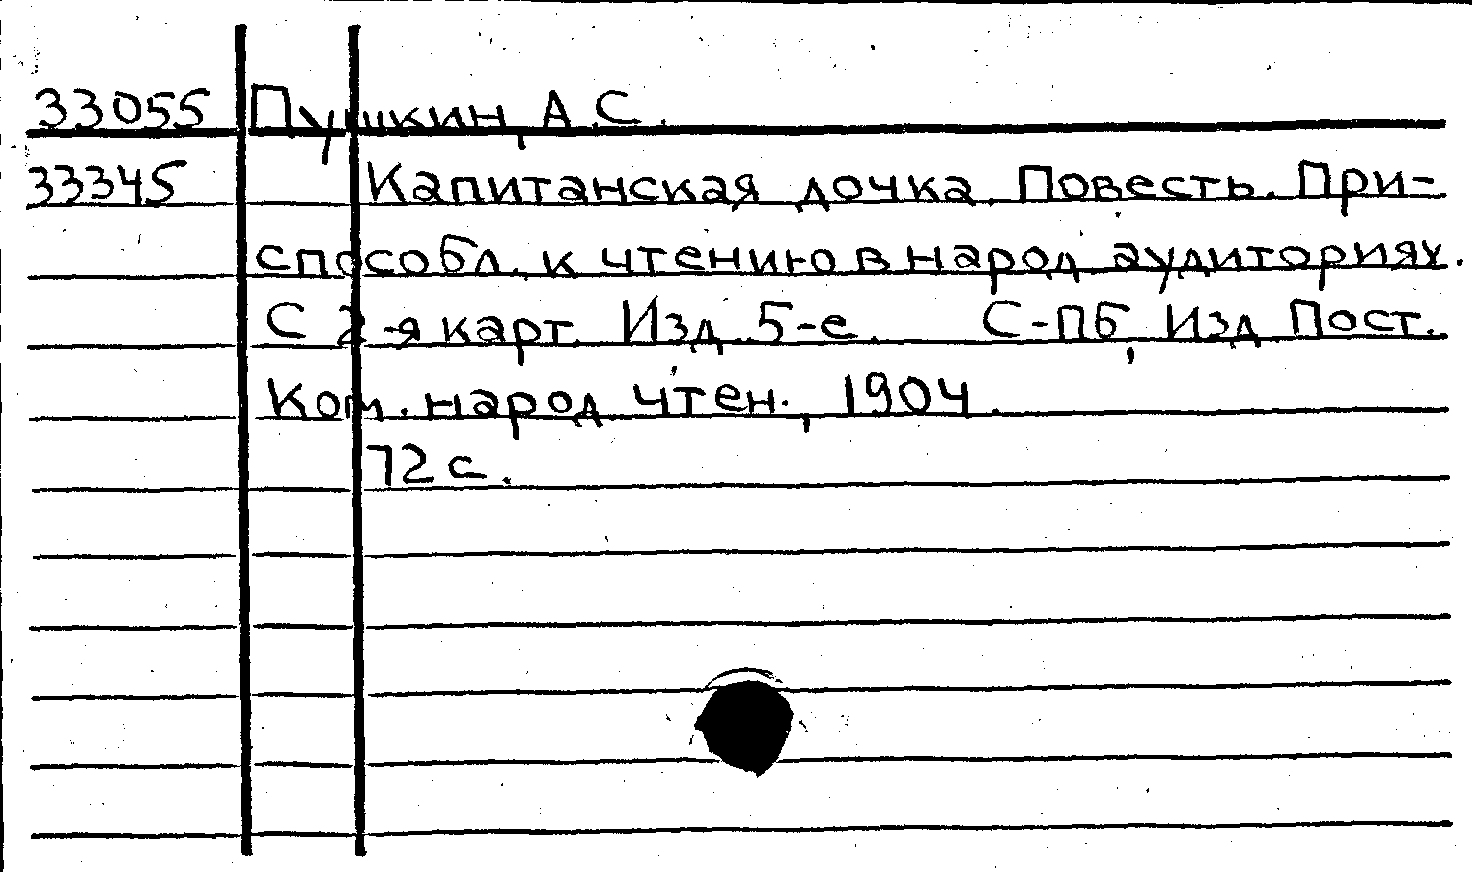 33055 Пушкин, А.С.
33345 Капитанская дочка. Повесть. При-
способл. к чтению в народ. аудиториях.
С 2-я карт. Изд. 5-е. С-Пб, Изд. Пост.
Ком. народ. чтен., 1904.
72 с.